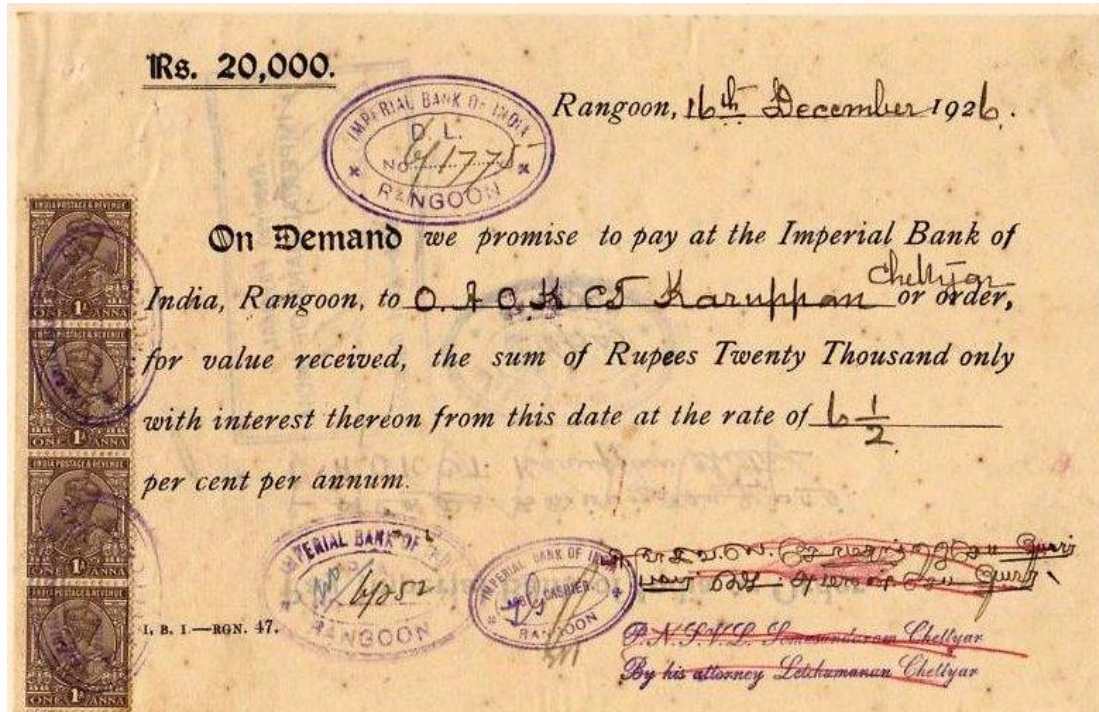 Rs. 20,000.
IMPERIAL BANK OF INDIA
D. L.
NO
RANGOON
Rangoon, 16th December 1926.
On Demand we promise to pay at the Imperial Bank of
Chettyar
India, Rangoon, to O. A. O. K. CT Karuppan or order,
for value received, the sum of Rupees Twenty Thousand only
with interest thereon from this date at the rate of 6 1/2
per cent per annum.
INDIA POSTAGE & REVENUE
ONE 1A ANNA
INDIA POSTAGE & REVENUE
ONE 1A ANNA
INDIA POSTAGE & REVENUE
ONE 1A ANNA
INDIA POSTAGE & REVENUE
ONE 1A ANNA
IMPERIAL BANK OF
RANGOON
IMPERIAL BANK OF INDIA
CASHIER
RANGOON
I. B. I.—RGN. 47.
Chettyar
By his attorney Letchumanan Chettyar